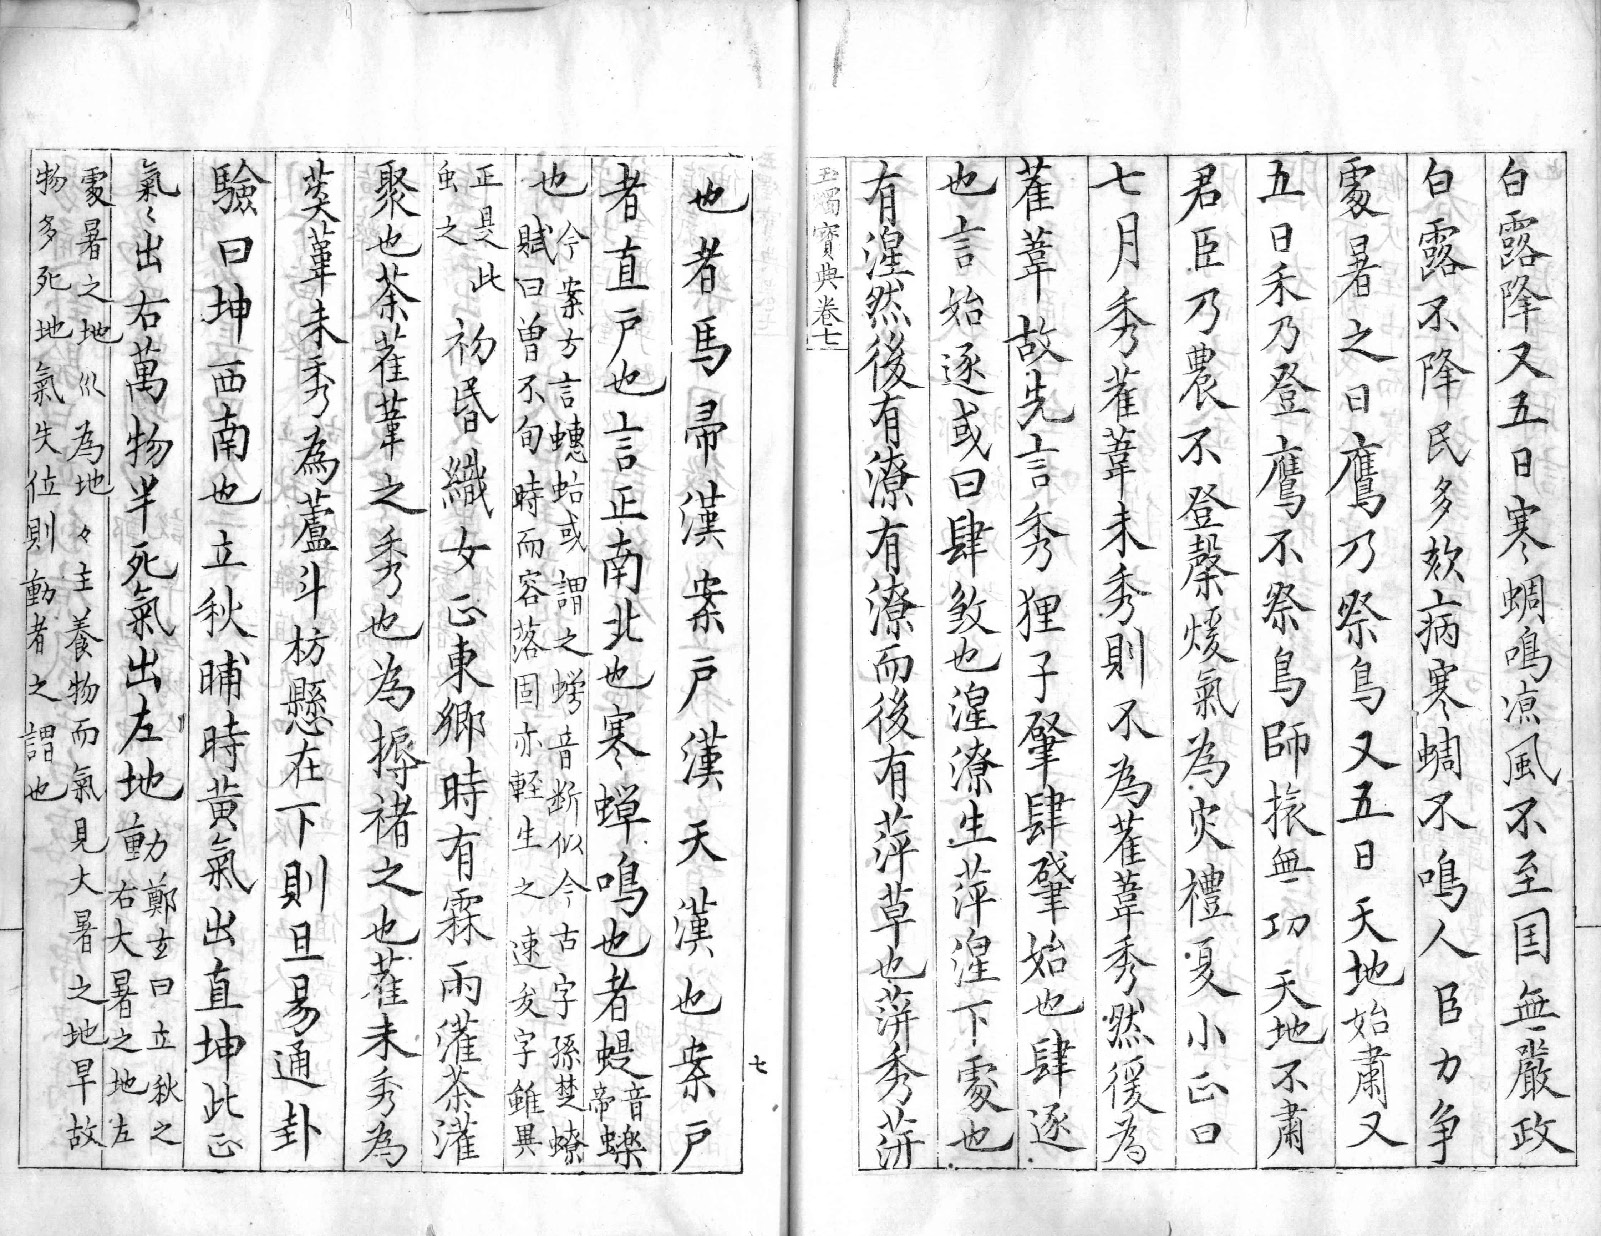 白露降又五日寒蜩鳴凉風不至国無嚴政
白露不降民多欬病寒蜩不鳴人臣力争
䖏暑之日鷹乃祭鳥又五日天地始肅又
五日禾乃登鷹不祭鳥師振無功天地不肅
君臣乃農不登馨煖氣為灾禮夏小正曰
七月秀雚葦未秀則不為雚葦秀然後為
雚葦故先言秀狸子肇肆肇始也肆遂
也言始逐或曰肆煞也湟潦生萍湟下䖏也
有湟然後有潦有潦而後有萍草也荓秀荓
玉燭寶典卷七
七
也者馬帚漢案戸漢天漢也案戸
者直戸也言正南北也寒蟬鳴也者蝭音帝蠑
也今案方言蟪蛄或謂之蟧音断似今古字孫楚蟟
賦曰曽不旬時而容落固亦軽生之速矣字雖異
正是此
虫之初昏織女正東郷時有霖雨灌荼灌
聚也荼雚葦之秀也為搙褚之也雚未秀為
菼葦未秀為蘆斗枋懸在下則旦易通卦
驗曰坤西南也立秋晡時黄氣出直坤此正
氣〻出右萬物半死氣出左地動鄭玄曰立秋之
右大暑之地左
䖏暑之地以為地々主養物而氣見大暑之地旱故
物多死地氣失位則動者之謂也